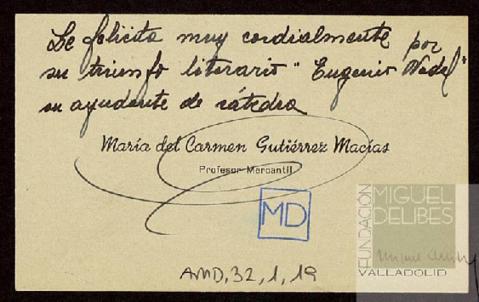 Le felicita muy cordialmente por
su triunfo literario "Eugenio Nadal"
su ayudante de cátedra
María del Carmen Gutiérrez Macías
Profesor Mercantil
MD
AMD, 32, 1, 19
FUNDACIÓN
MIGUEL
DELIBES
VALLADOLID